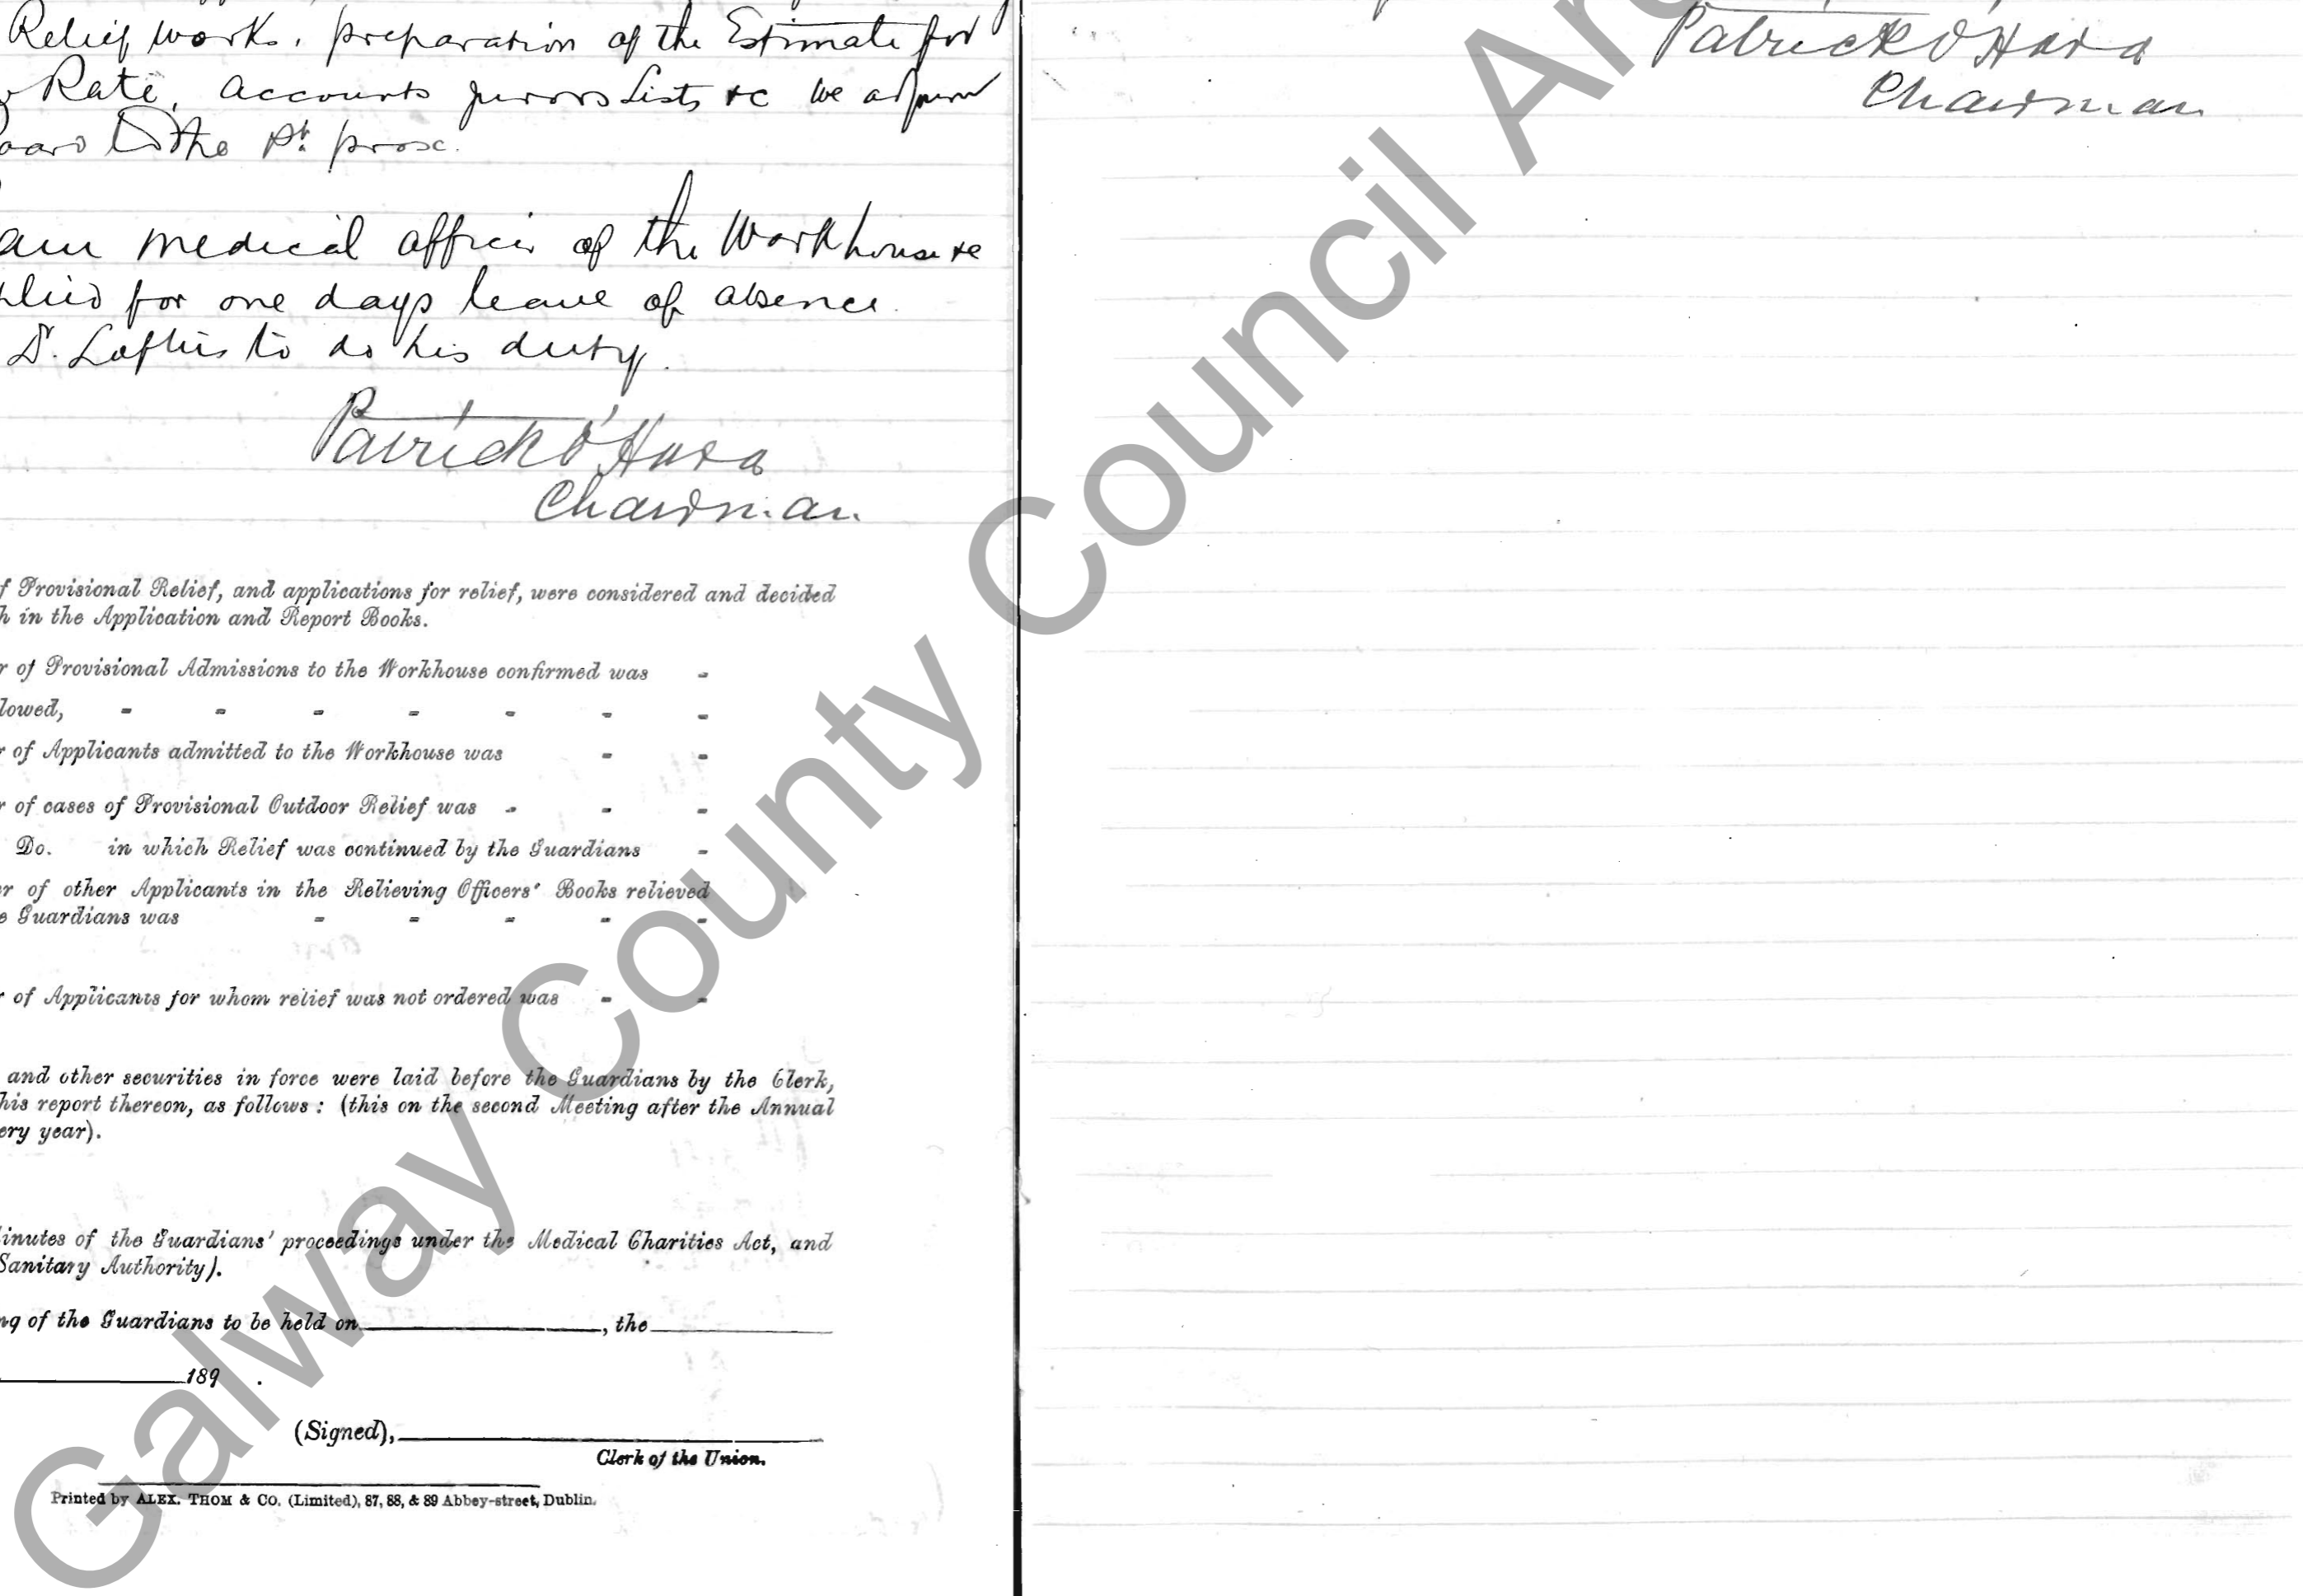 Relief works, preparation of the Estimate for
Rate, accounts jurors Lists &c we adjourn
to the 1st prox.
medical officer of the Workhouse &c
for one days leave of absence.
Dr. Loftus to do his duty.
Patrick O'Hara
Chairman
f Provisional Relief, and applications for relief, were considered and decided
h in the Application and Report Books.
r of Provisional Admissions to the Workhouse confirmed was -
lowed, - - - - - - -
r of Applicants admitted to the Workhouse was - -
r of cases of Provisional Outdoor Relief was - - -
Do. in which Relief was continued by the Guardians -
er of other Applicants in the Relieving Officers' Books relieved
e Guardians was - - - - -
r of Applicants for whom relief was not ordered was - -
and other securities in force were laid before the Guardians by the Clerk,
his report thereon, as follows : (this on the second Meeting after the Annual
ery year).
inutes of the Guardians' proceedings under the Medical Charities Act, and
Sanitary Authority).
ng of the Guardians to be held on , the
189 .
(Signed),
Clerk of the Union.
Printed by ALEX. THOM & CO. (Limited), 87, 88, & 89 Abbey-street, Dublin.
Patrick O'Hara
Chairman
Galway County Council Arc